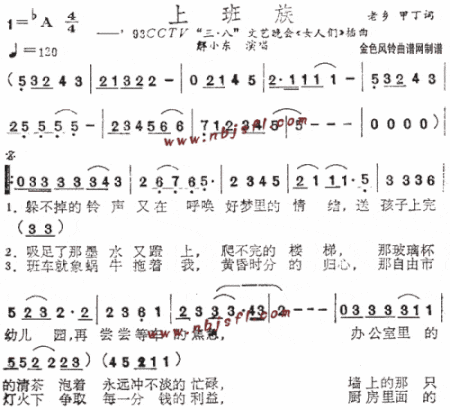 1=♭A 4/4 上班族 老乡 甲丁词
——'93CCTV“三·八”文艺晚会《女人们》插曲
♩=120 解小东 演唱 金色风铃曲谱网制谱
(5 3 2 4 3 | 2 1 3 2 2 - | 0 2 1 4 5 | 2·1 1 1 1 - |
2 5 5 5 5 - | 2 3 4 5 6 6 | 7 1 2 · 2 4 5 | 5 - - - | 0 0 0 0)
www.nbjsfl.com
0 3 3 3 3 4 3 | 2 6 7 6 5· | 2 3 4 5 | 2 1 1 1·5 | 3 3 3 6
1、躲不掉的铃声又在呼唤好梦里的情结,送孩子上完
(3 3)
2、吸足了那墨水又蹬上,爬不完的楼梯,那玻璃杯
3、班车就象蜗牛拖着我,黄昏时分的归心,那自由市
www.nbjsfl.com
幼儿园,再尝尝等车的焦急,办公室里的
(4 5 2 1 1)
的清茶泡着永远冲不淡的忙碌,墙上的那只
灯火下争取每一分钱的利益,厨房里面的